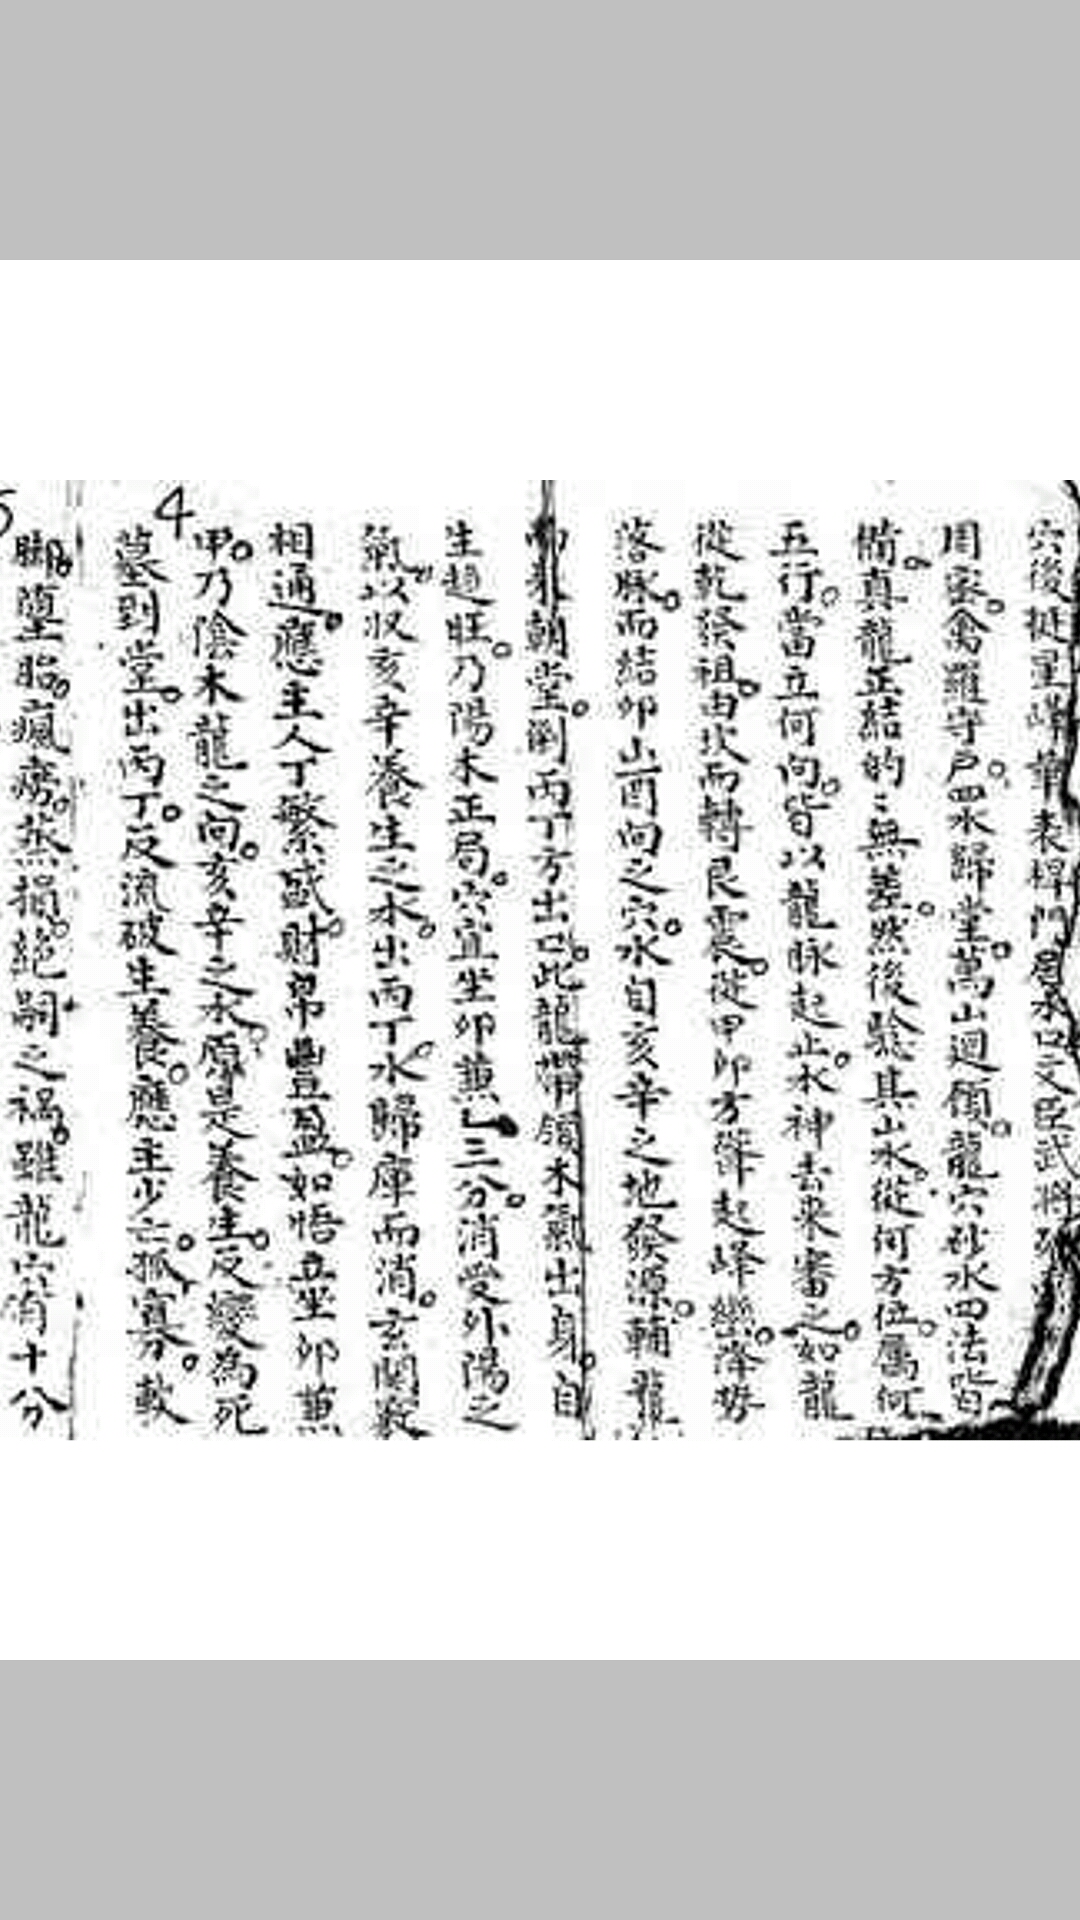 穴後挺星峰華表捍門居水口文臣武將
周密禽羅守戶四水歸堂萬山迴顧龍穴砂水四法皆
備真龍正結的〻無差然後驗其山水從何方位屬何
五行當立何向皆以龍脉起止水神去來審之如龍
從乾發祖由坎而轉艮震從甲卯方聳起峰巒落勢
落脉而結卯山酉向之穴水自亥辛之地發源輔龍
而來朝堂瀏丙丁方出口此龍帶領木氣出身自
生趨旺乃陽木正局穴宜坐卯兼乙三分消受外陽之
氣以収亥辛養生之水出丙丁水歸庫而消玄関竅
相通應主人丁繁盛財帛豐盈如悟立坐卯兼
4
甲乃陰木龍之向亥辛之水原是養生反變為死
墓到堂出丙丁反流破生養應主少亡孤寡軟
脚墮胎瘋癆蒸損絕嗣之禍雖龍穴有十分